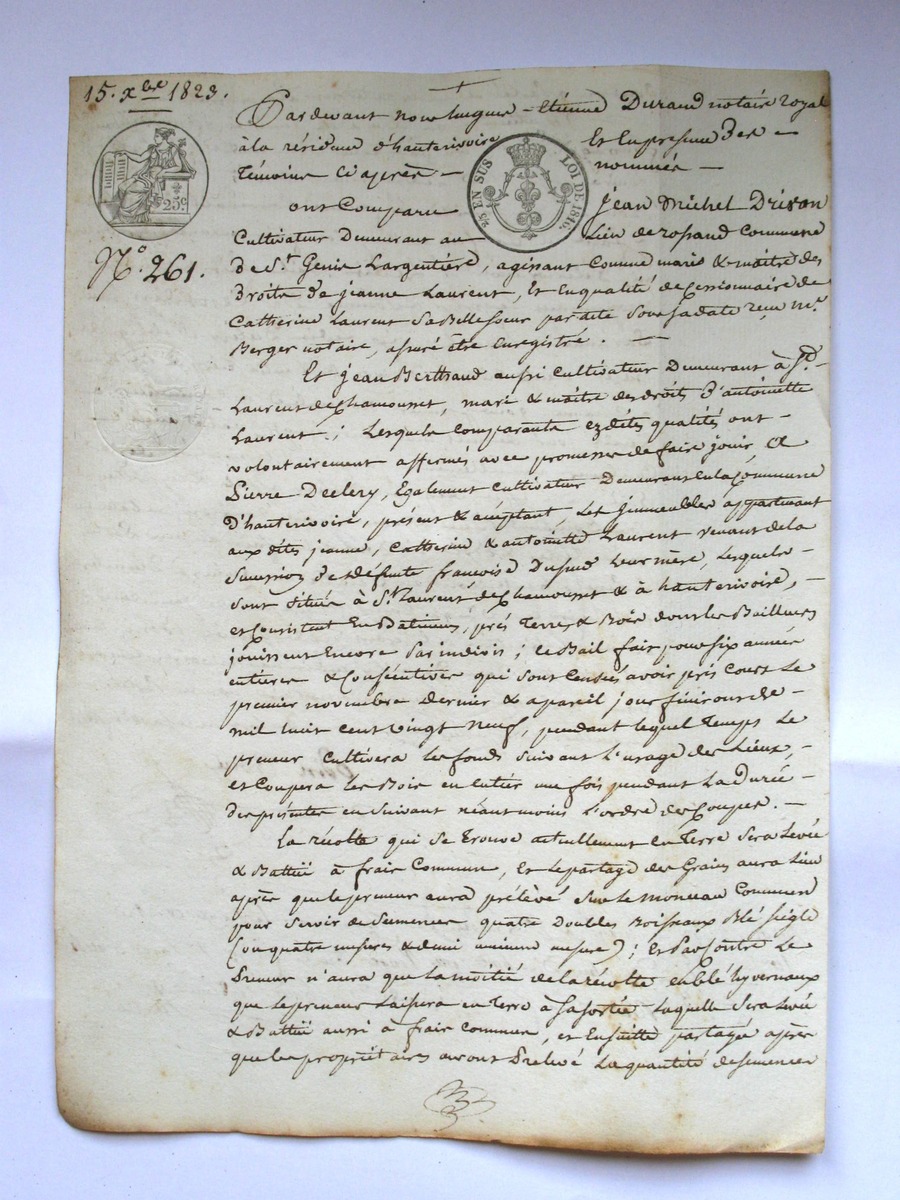 15. xbre 1823.
25c.
2/5 EN SUS LOI DE 1816.
N° 261.
Pardevant nous Etienne Durand notaire Royal
à la résidence d'hauterivoire Et En presence Des
Témoins Ci après nommés
ont Comparu jean Michel Drivon
Cultivateur Demeurant au Lieu de rossand Commune
de St. Genis Largentière, agissant Comme mari & maître des
Droits de jeanne Laurent, Et En qualité de Cessionnaire de
Catherine Laurent Sa Belle Soeur par acte Sous Sa date reçu Me.
Berger notaire, assuré être Enregistré.
Et jean Berthaud aussi Cultivateur Demeurant à St.
Laurent de Chamousset, mari & maître des droits d'antoinette
Laurent; Lesquels Comparants Ezdites qualités ont
volontairement affermés avec promesse de faire jouir, A
Pierre Declery, Également Cultivateur Demeurant En la Commune
D'hauterivoire, présent & acceptant, Les jmmeubles appartenant
aux dites jeanne, Catherine & antoinette Laurent venant de la
Succession de Défunte françoise Leur mère, Lesquels
Sont Situés à St. Laurent de Chamousset & à hauterivoire,
et Consistent En Batiments, prés Terres & Bois dont Les Bailleurs
jouissent Encore Par indivis; Ce Bail fait pour Six années
entières & Consécutives qui Sont Censées avoir pris Cours Le
premier novembre Dernier & a pareil jour finiront de
mil huit Cent vingt neuf, pendant lequel Temps Le
preneur Cultivera Les fonds Suivant L'usage des Lieux,
et Coupera Les Bois en Entier une fois pendant La Durée
des présentes en Suivant néantmoins L'ordre des Coupes.
La récolte qui Se Trouve actuellement En Terre Sera Levée
& Battüe à frais Commune, Et Le partage des Grains aura Lieu
après que le preneur aura prélevé Sur Le monceau Commun
pour Servir de Semences quatre Doubles Boisseaux Blé Seigle
(ou quatre mesures & demi ancienne mesure); Et Par Contre Le
Preneur n'aura que La moitié de la récolte en blé hyvernaux
que le preneur Laissera en Terre à Sa Sortie Laquelle Sera Levée
& Battüe aussi à frais Commun, et Ensuitte partagée après
que les propriétaires auront Prelevé La quantité de Semences